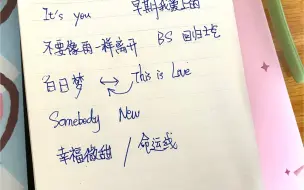 It's you 早期我爱上的
不要像雨一样离开 BS 回归土气
白日梦 This is Love
Somebody New
幸福微甜 / 命运线